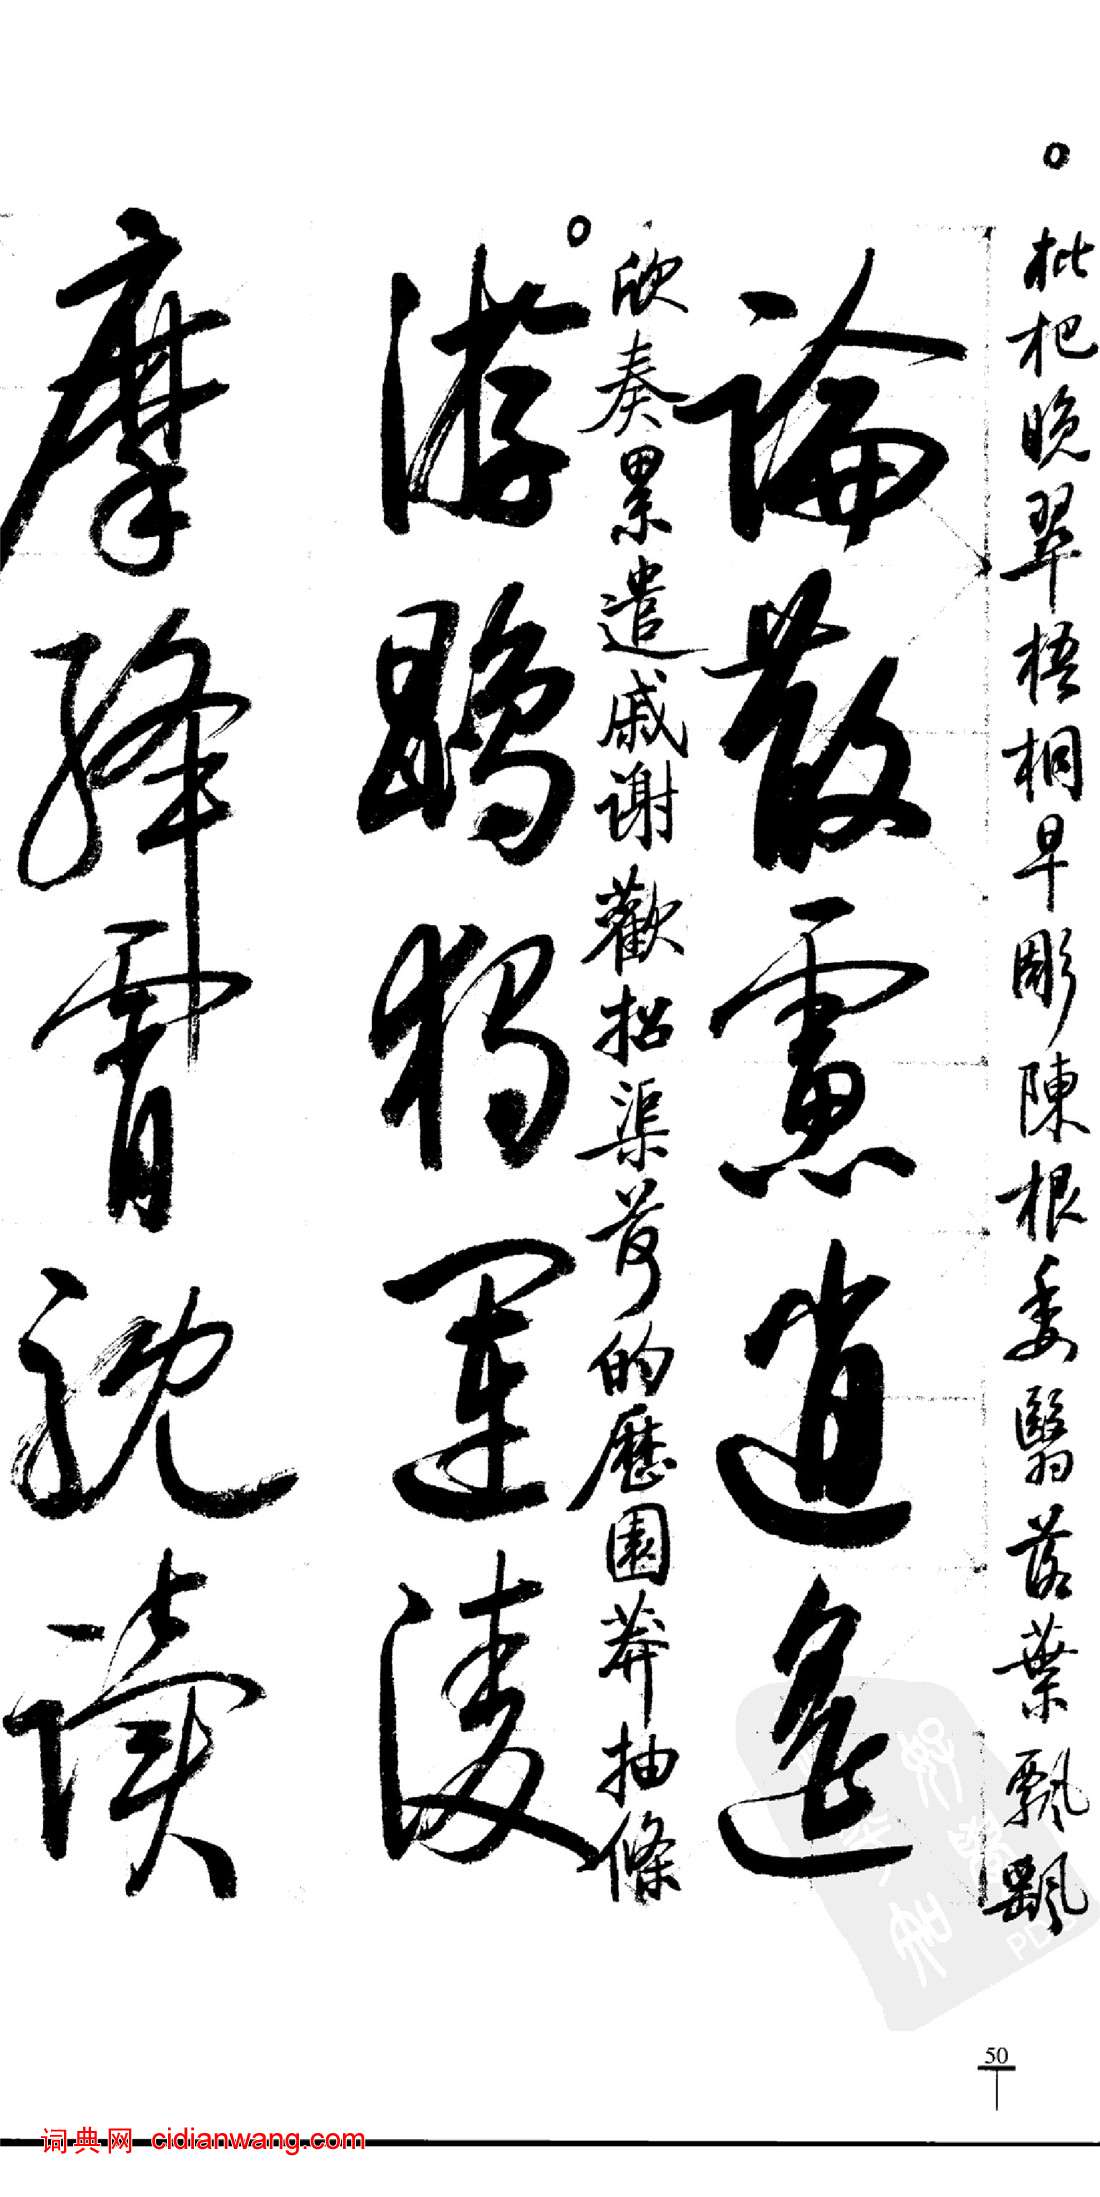 枇杷晚翠梧桐早彫陳根委翳落葉飄颻
論散慮逍遙
欣奏累遣戚謝歡招渠荷的歷園莽抽條
游鵾獨運凌
摩絳霄耽讀
50
词典网 cidianwang.com